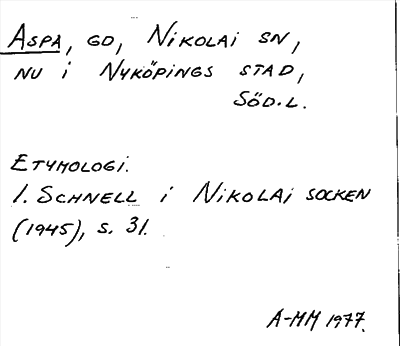 ASPA, GD, NIKOLAI SN,
NU I NYKÖPINGS STAD,
SÖD.L.
ETYMOLOGI.
I. SCHNELL I NIKOLAI SOCKEN
(1945), S. 31.
A-MM 1977.